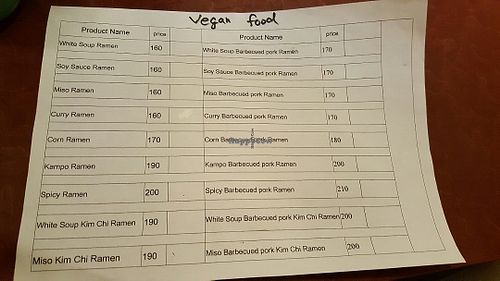 Vegan food
Product Name price Product Name price
White Soup Ramen 160 White Soup Barbecued pork Ramen 170
Soy Sauce Ramen 160 Soy Sauce Barbecued pork Ramen 170
Miso Ramen 160 Miso Barbecued pork Ramen 170
Curry Ramen 160 Curry Barbecued pork Ramen 170
Corn Ramen 170 Corn Ramen 180
Kampo Ramen 190 Kampo Barbecued pork Ramen 200
Spicy Ramen 200 Spicy Barbecued pork Ramen 210
White Soup Kim Chi Ramen 190 White Soup Barbecued pork Kim Chi Ramen 200
Miso Kim Chi Ramen 190 Miso Barbecued pork Kim Chi Ramen 200